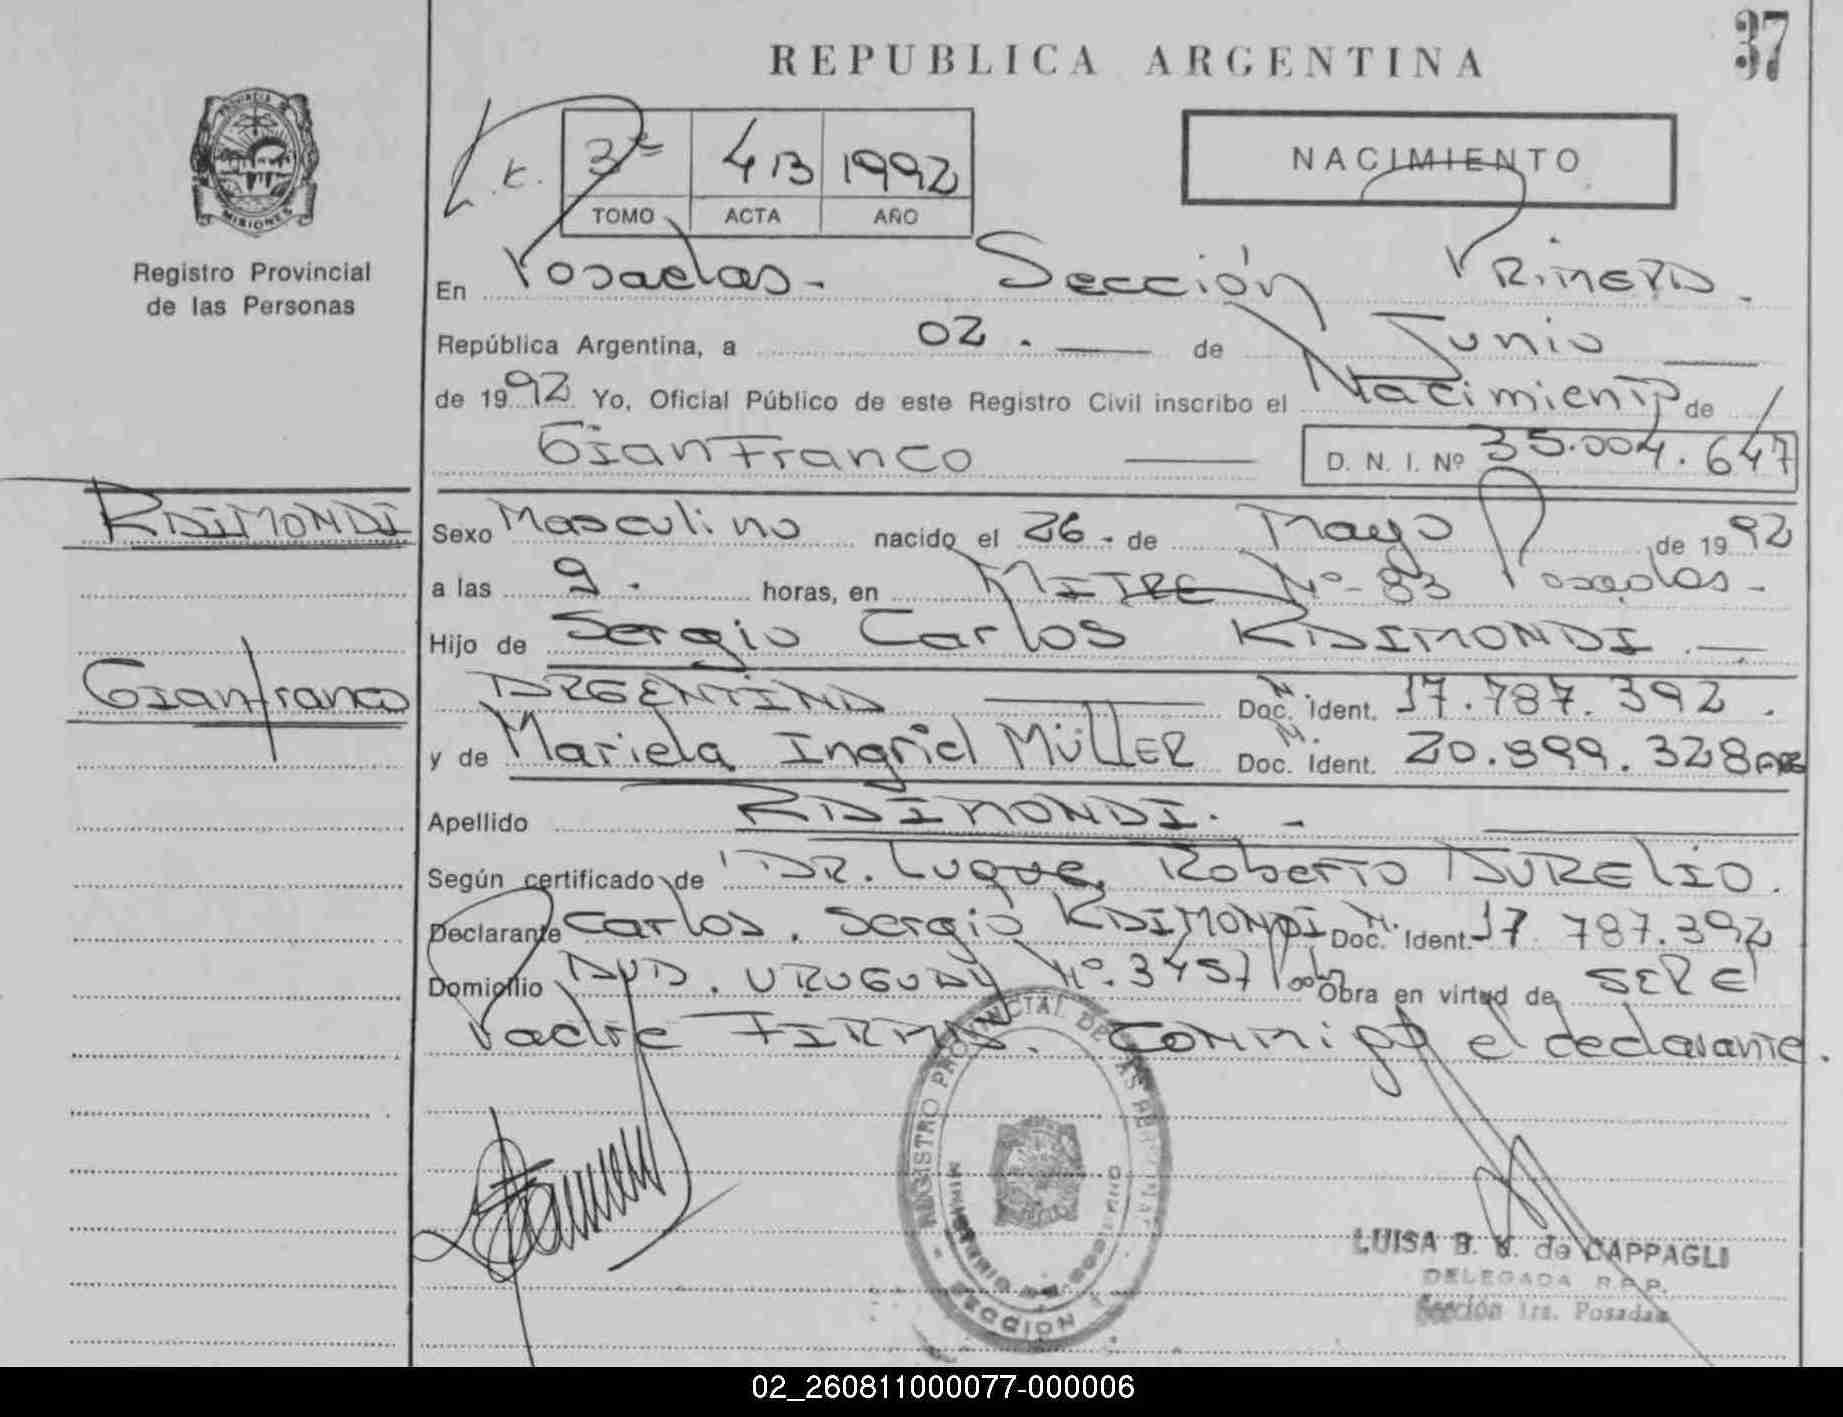 37
REPUBLICA ARGENTINA
PROVINCIA DE
MISIONES
Registro Provincial
de las Personas
t. 3º 413 1992
TOMO ACTA AÑO
NACIMIENTO
En Posadas - Sección PRIMERA.
República Argentina, a 02. de Junio
de 1992 Yo, Oficial Público de este Registro Civil inscribo el Nacimiento de /
GianFranco D. N. I. Nº 35.004.647
RAIMONDI
Sexo Masculino nacido el 26 - de Mayo de 1992
a las 9. horas, en MITRE Nº- 83 Posadas -
Hijo de Sergio Carlos RAIMONDI. -
Gianfranco
ARGENTINA Doc. Ident. 17.787.392.
y de Mariela Ingrid MÜLLER Doc. Ident. 20.899.328 ARG
Apellido RAIMONDI. -
Según certificado de DR. Luque, Roberto AURELIO.
Declarante Carlos. Sergio RAIMONDI Doc. Ident. 17.787.392
Domicilio AVD. URUGUAY Nº. 3457 Obra en virtud de SER El
Padre FIRMA. Conmigo el declarante.
REGISTRO PROVINCIAL DE LAS PERSONAS
MINISTERIO DE GOBIERNO
SECCION 1
LUISA B. de CAPPAGLI
DELEGADA R.P.P.
Sección 1ra. Posadas
02_260811000077-000006